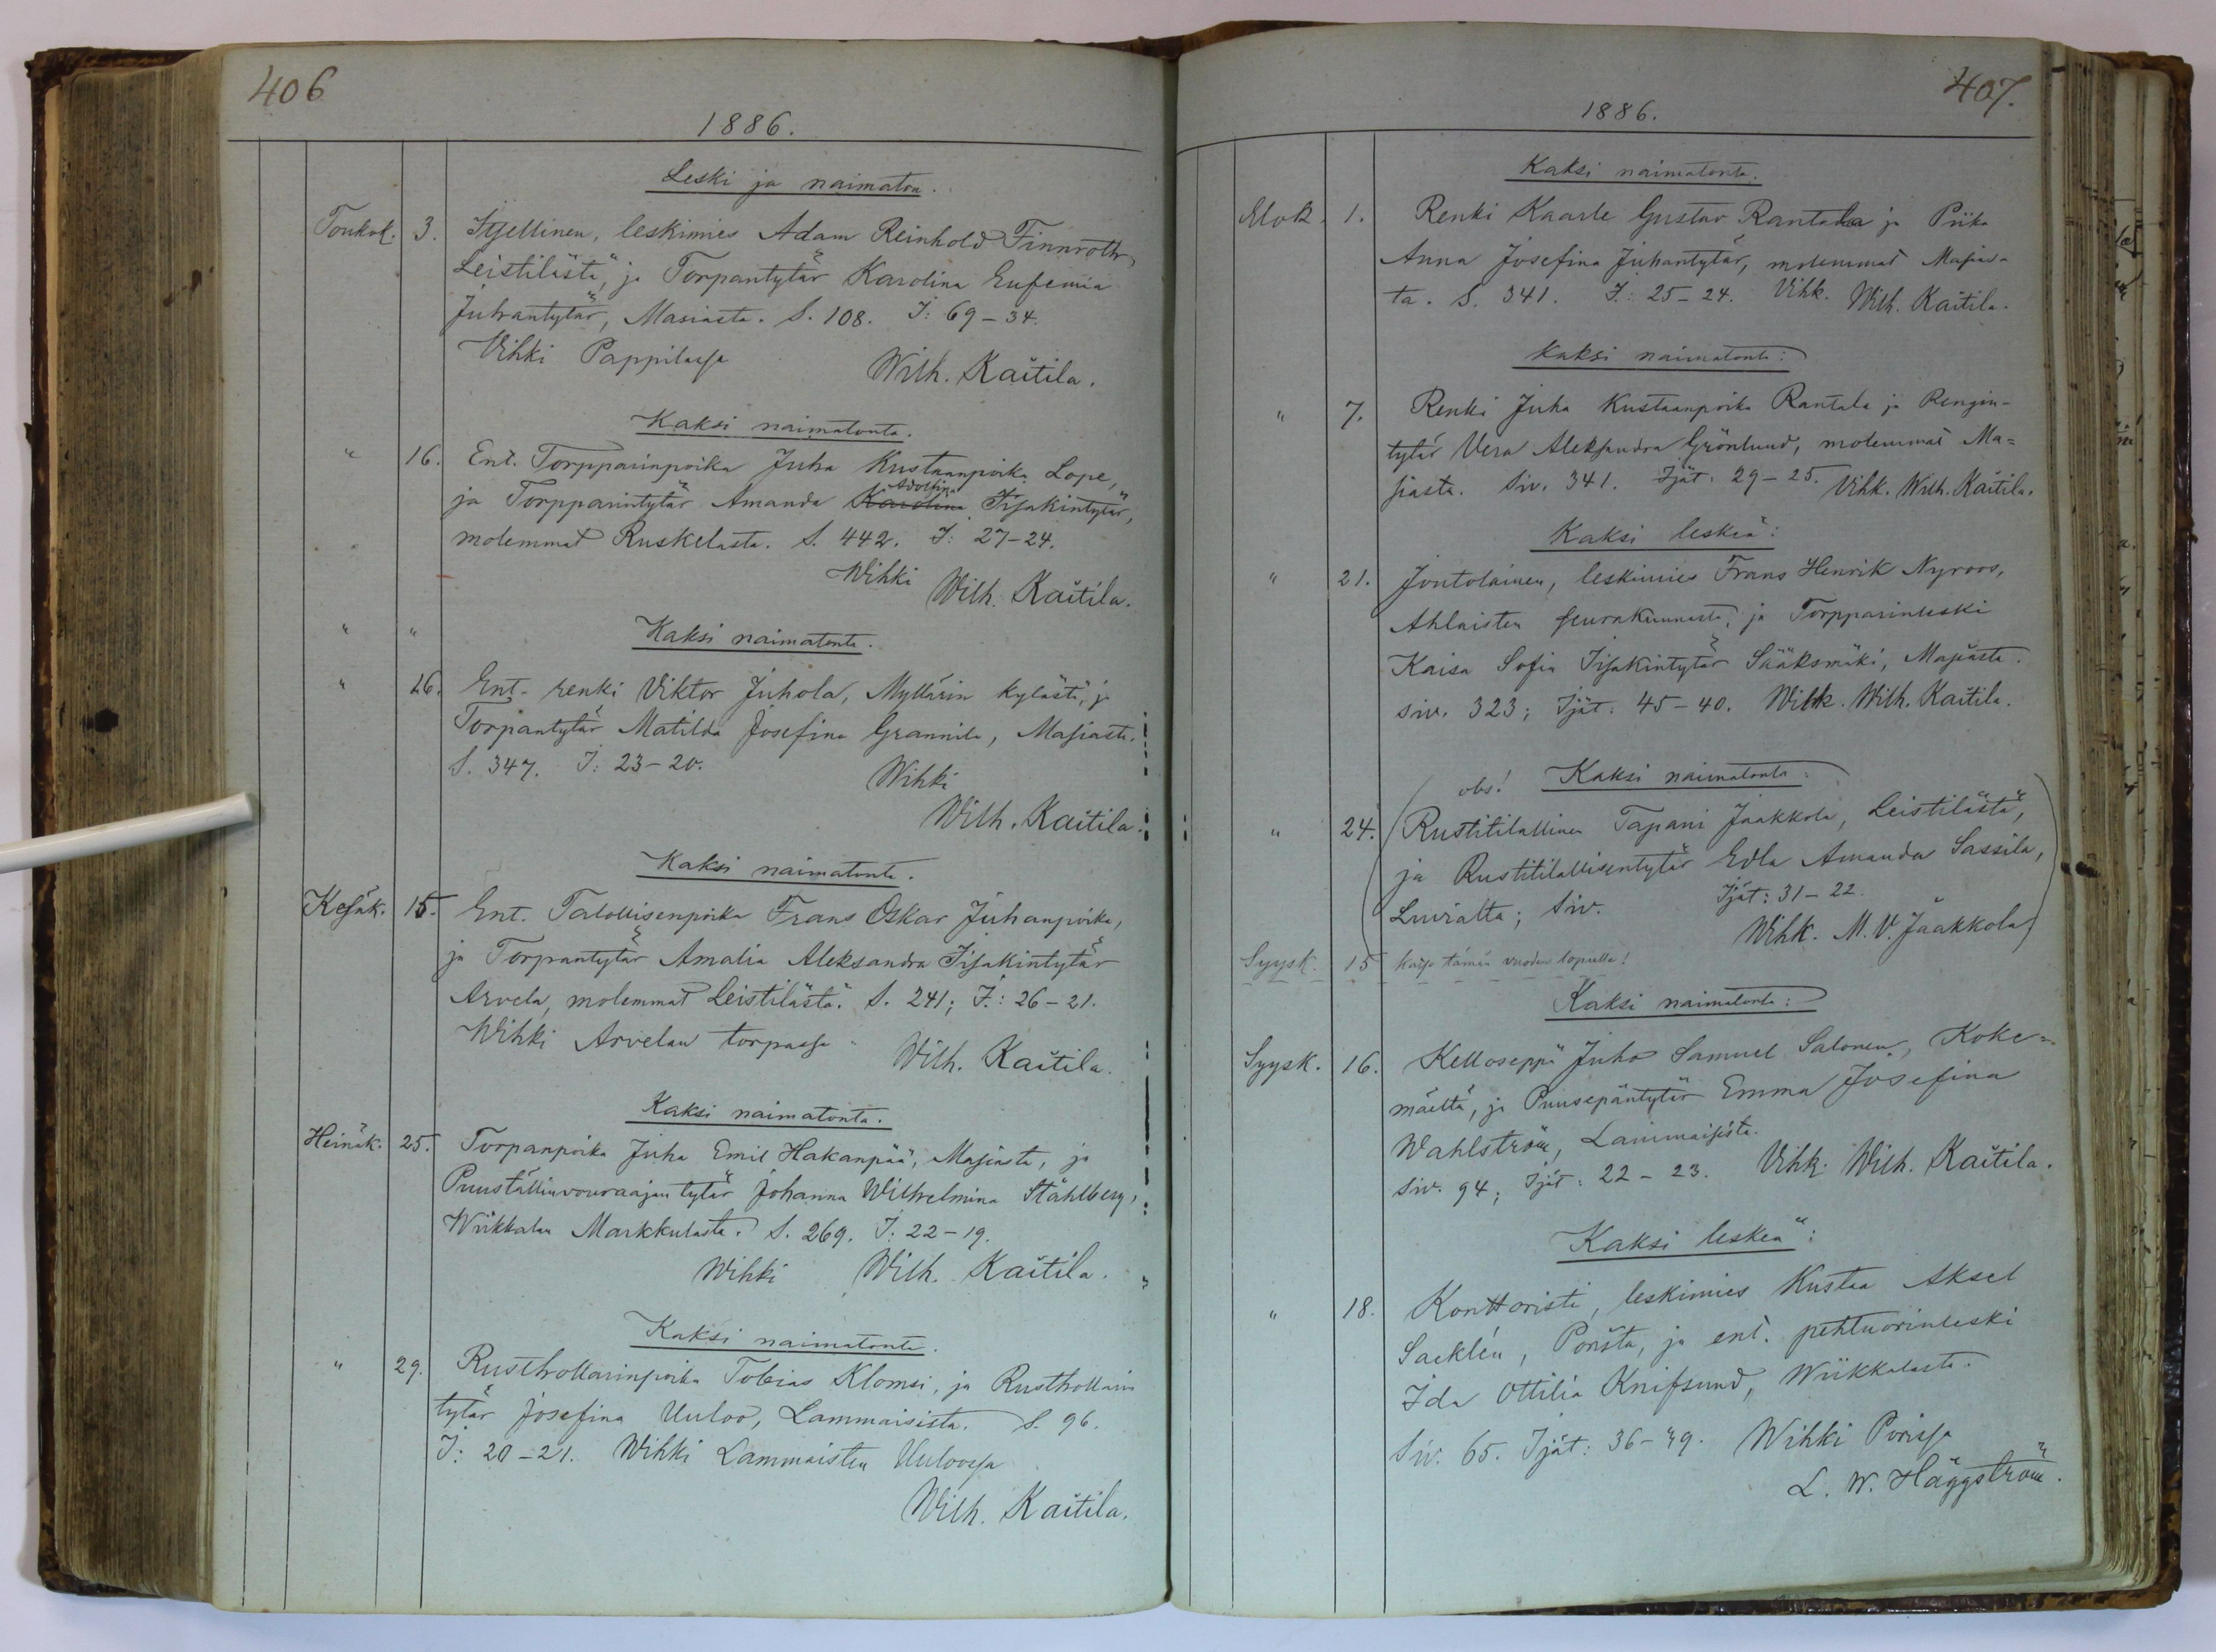 406
1886.
Leski ja naimaton.
Toukok. 3. Itjellinen, leskimies Adam Reinhold Finnroth
Leistilästä, ja Torpantytär Karolina Eufemia
Juhantytär, Masiasta. S. 108. I: 69-34.
Vihki Pappilassa
Wilh. Kaitila.
Kaksi naimatonta.
" 16. Ent. Torpparinpoika Juha Kustaanpoika Lope,
ja Torpparintytär Amanda Karolina Adolfina Iisakintytär,
molemmat Ruskelasta. S. 442. I: 27-24.
Wihki
Wilh. Kaitila.
" "
Kaksi naimatonta.
" 26. Ent. renki Viktor Juhola, Myllärin kylästä, ja
Torpantytär Matilda Josefina Grannila, Masiasta.
S. 347. I: 23-20.
Wihki
Wilh. Kaitila.
Kaksi naimatonta.
Kesäk. 15. Ent. Talollisenpoika Frans Oskar Juhanpoika,
ja Torpantytär Amalia Aleksandra Iisakintytär
Arvela, molemmat Leistilästä. S. 241; I.: 26-21.
Wihki Arvelan torpassa
Wilh. Kaitila.
Kaksi naimatonta.
Heinäk. 25. Torpanpoika Juha Emil Hakanpää, Masiasta, ja
Puuställinvouraajan tytär Johanna Wilhelmina Ståhlberg,
Wiikkalan Markkulasta. S. 269. I: 22-19.
Wihki Wilh. Kaitila.
Kaksi naimatonta.
" 29. Rusthollarinpoika Tobias Klomsi, ja Rusthollarin
tytär Josefina Uuloo, Lammaisista. S. 96.
I: 20-21. Wihki Lammaisten Uuloossa
Wilh. Kaitila.
407.
1886.
Kaksi naimatonta.
Elok. 1. Renki Kaarle Gustav Rantala ja Piika
Anna Josefina Juhantytär, molemmat Masias-
ta. S. 341. I.: 25-24. Vihk. Wilh. Kaitila.
Kaksi naimatonta:
" 7. Renki Juha Kustaanpoika Rantala ja Rengin-
tytär Vera Aleksandra Grönlund, molemmat Ma=
siasta. Siv. 341. Ijät: 29-25. Vihk. Wilh. Kaitila.
Kaksi leskeä:
" 21. Joutolainen, leskimies Frans Henrik Nyroos,
Ahlaisten seurakunnasta, ja Torpparinleski
Kaisa Sofia Iisakintytär Sääksmäki, Masiasta.
siv. 323; Ijät: 45-40. Wihk. Wilh. Kaitila.
obs! Kaksi naimatonta:
" 24. Rustitilallinen Tapani Jaakkola, Leistilästä,
ja Rustitilallisentytär Edla Amanda Sassila,
Luvialta; Siv. Ijät: 31-22.
Wihk. M. V. Jaakkola
Syysk. 15 Katso tämän vuoden lopulla!
Kaksi naimatonta:
Syysk. 16. Kelloseppä Juho Samuel Salonen, Koke=
mäeltä, ja Puusepäntytär Emma Josefina
Wahlström, Lammaisista.
Siv. 94; Ijät: 22-23. Vihk. Wilh. Kaitila.
Kaksi leskeä:
" 18. Konttoristi, leskimies Kustaa Aksel
Sacklén, Porista, ja ent. pehtuorinleski
Ida Ottilia Knifsund, Wiikkalasta.
Siv. 65. Ijät: 36-49. Wihki Porissa
L. W. Häggström.